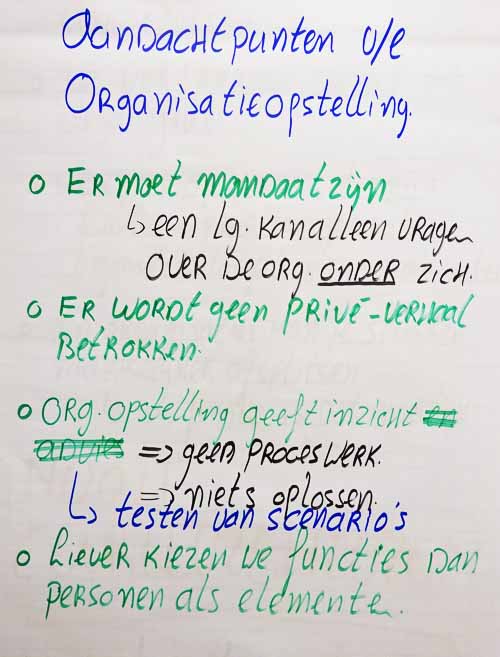 Aandachtpunten v/e
Organisatieopstelling.
o Er moet mandaat zijn
↳ een lg. kan alleen vragen
over de org. onder zich.
o Er wordt geen privé-verhaal
betrokken.
o Org. opstelling geeft inzicht en
advies => geen proceswerk.
=> niets oplossen.
↳ testen van scenario's
o Liever kiezen we functies dan
personen als elementen.